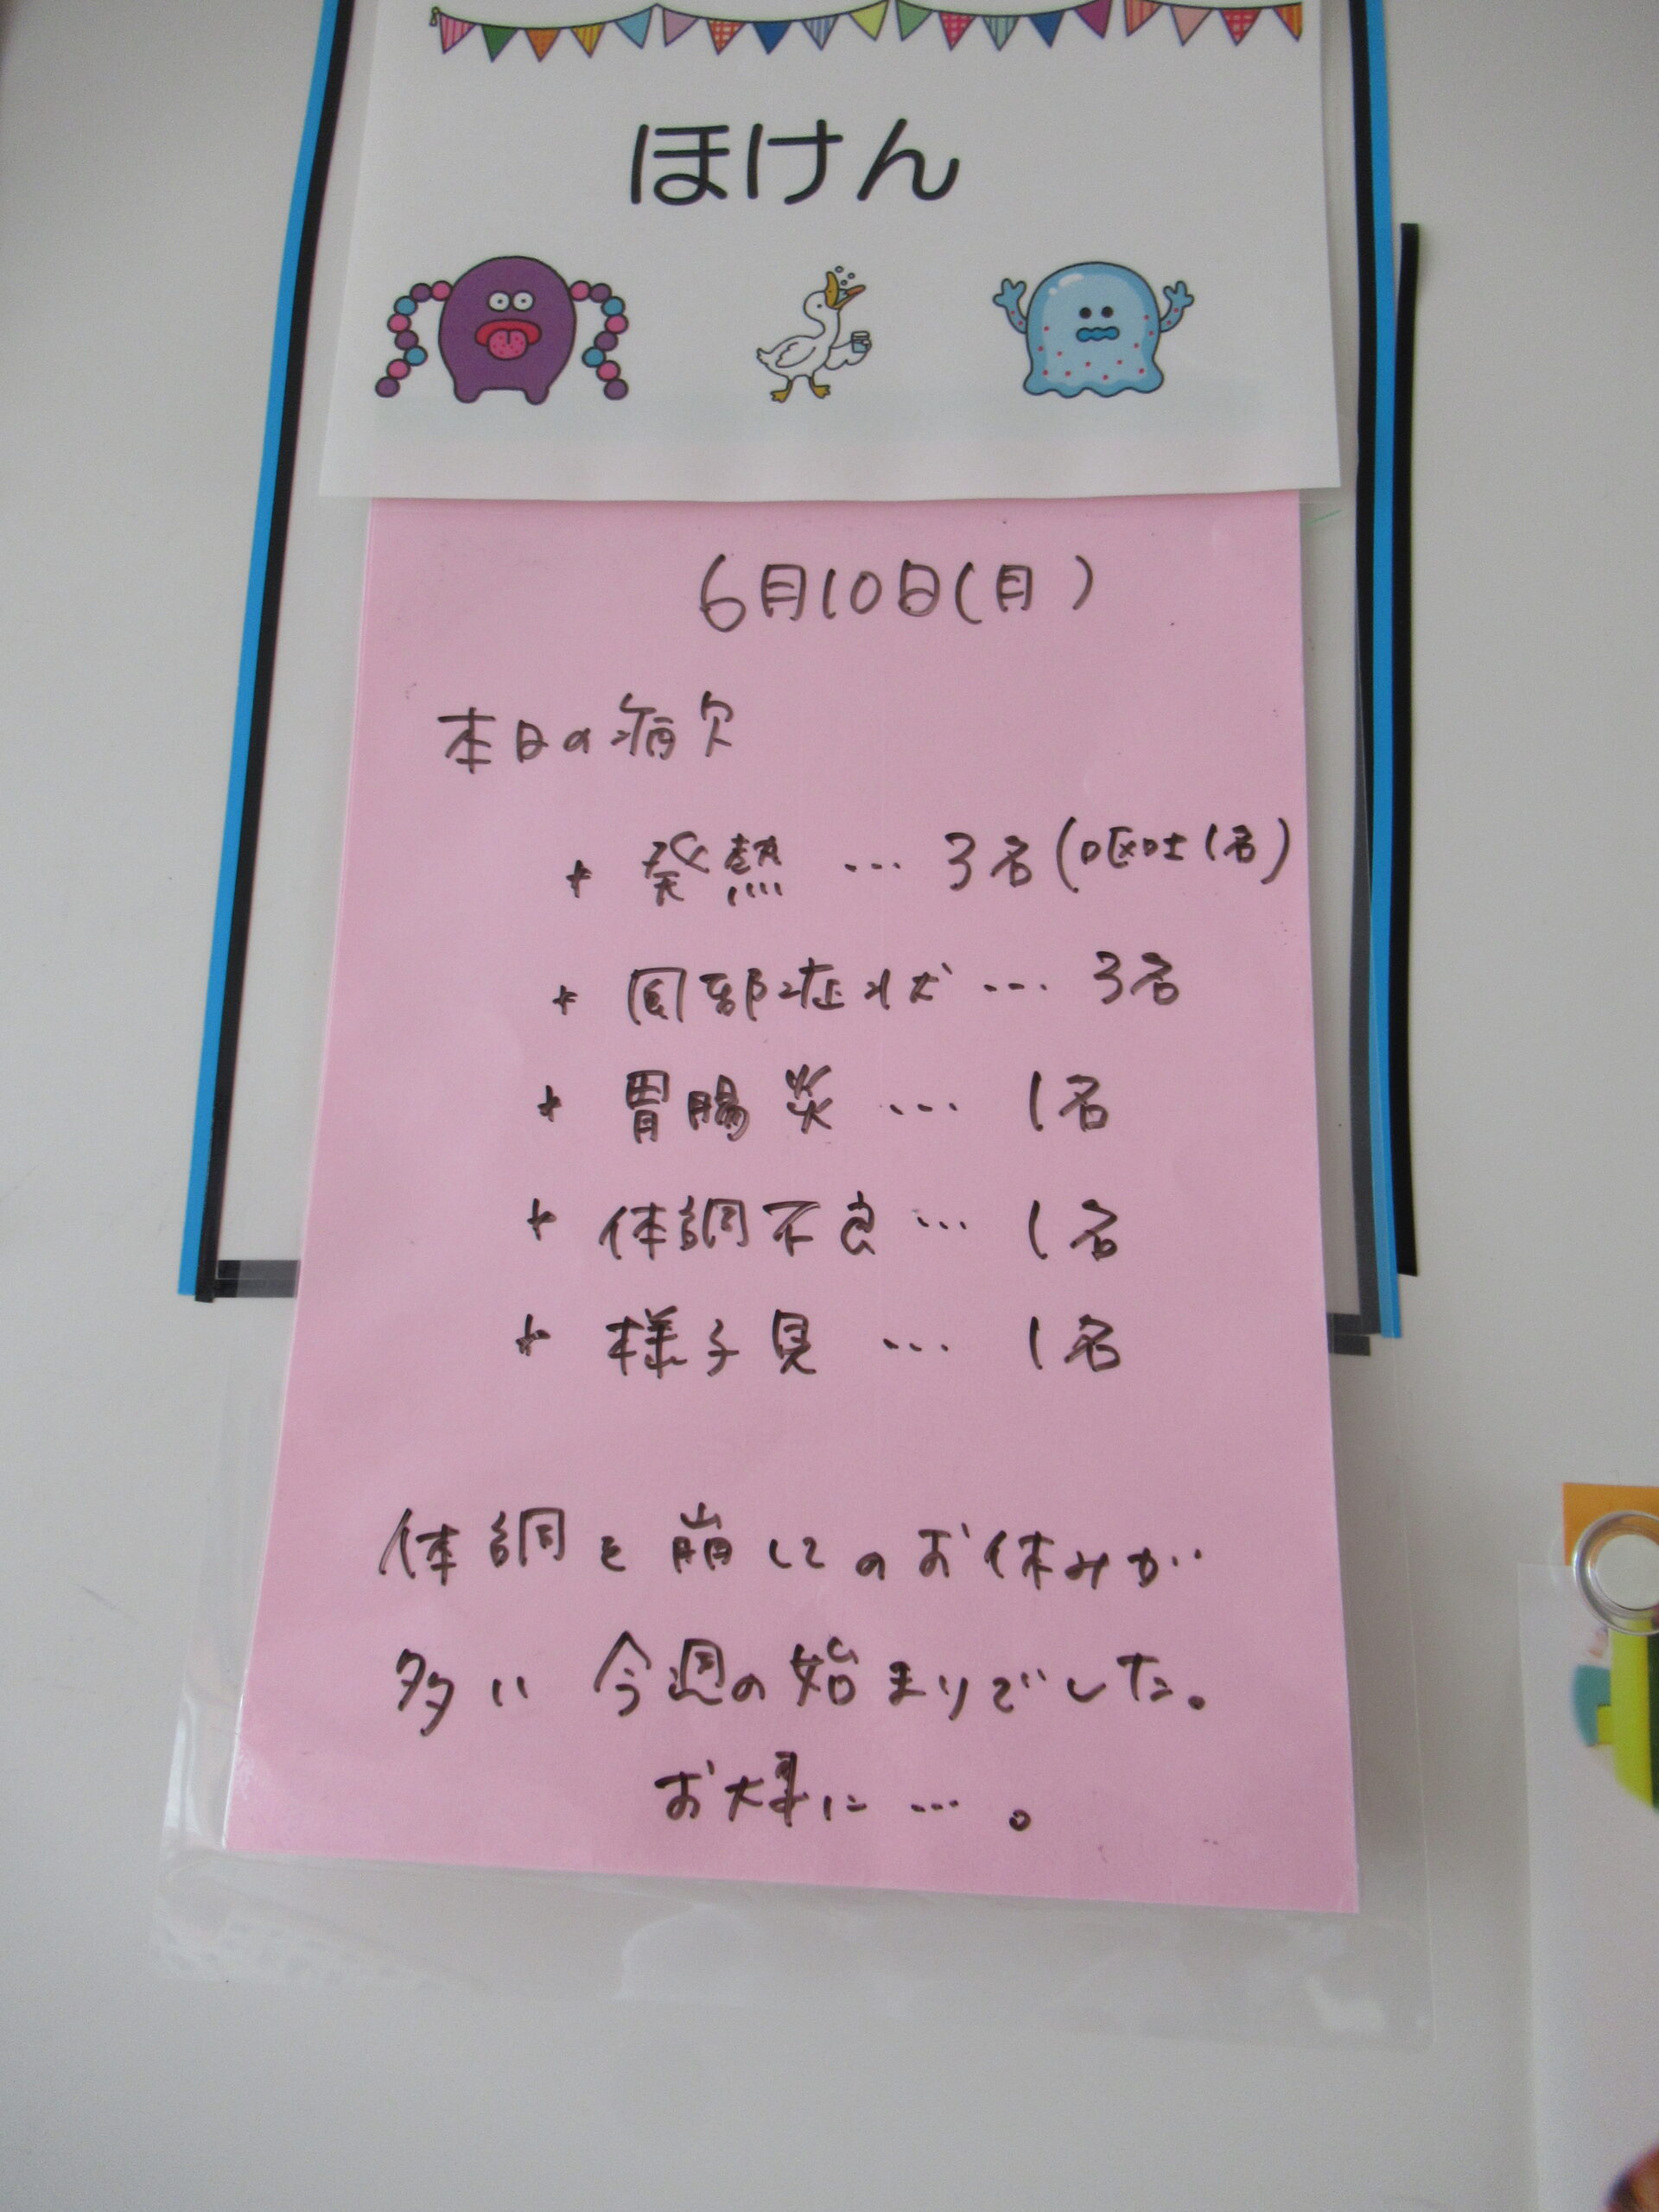 ほけん
6月10日(月)
本日の病欠
* 発熱 … 3名(嘔吐1名)
* 風邪症状 … 3名
* 胃腸炎 … 1名
* 体調不良 … 1名
* 様子見 … 1名
体調を崩してのお休みが
多い 今週の始まりでした。
お大事に …。